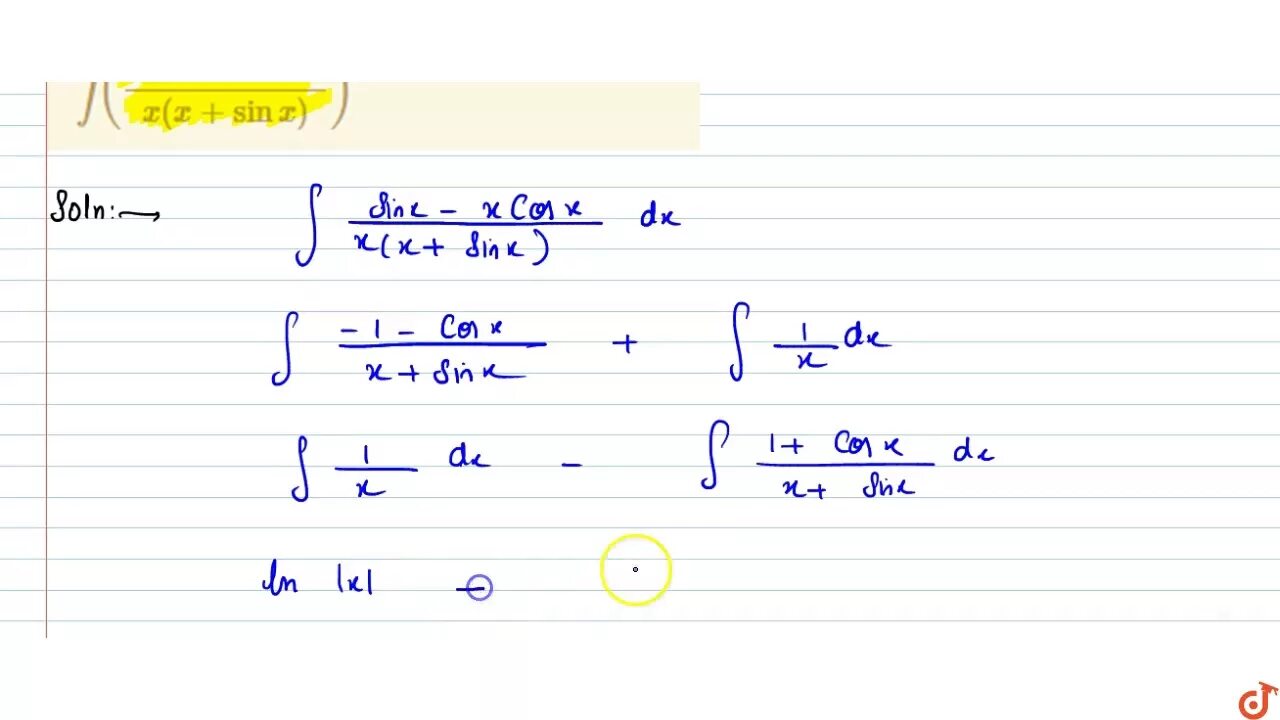 ∫( / x(x + sin x) )
Soln:→ ∫ (sinx - x Cos x) / (x(x + sinx)) dx
∫ (-1 - Cos x) / (x + sinx) + ∫ 1/x dx
∫ 1/x dx - ∫ (1 + Cos x) / (x + sinx) dx
ln |x| -